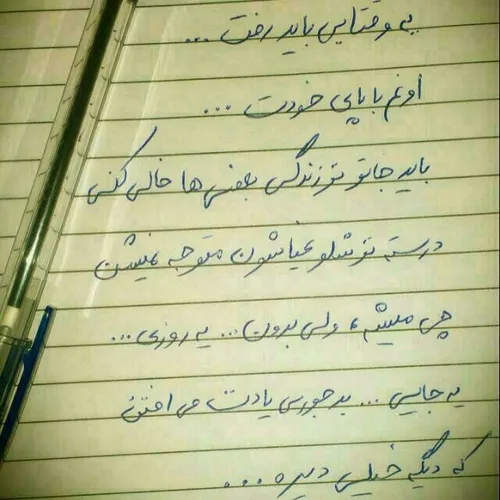 یه وقتایی باید رفت ...
اونم با پای خودت ...
باید جاتو تو زندگی بعضی ها خالی کنی
درسته تو شلوغیاشون متوجه نمیشن
چی میشه، ولی بدون ... یه روزی ...
یه جایی ... بد جوری یادت می افتن
که دیگه خیلی دیره ...